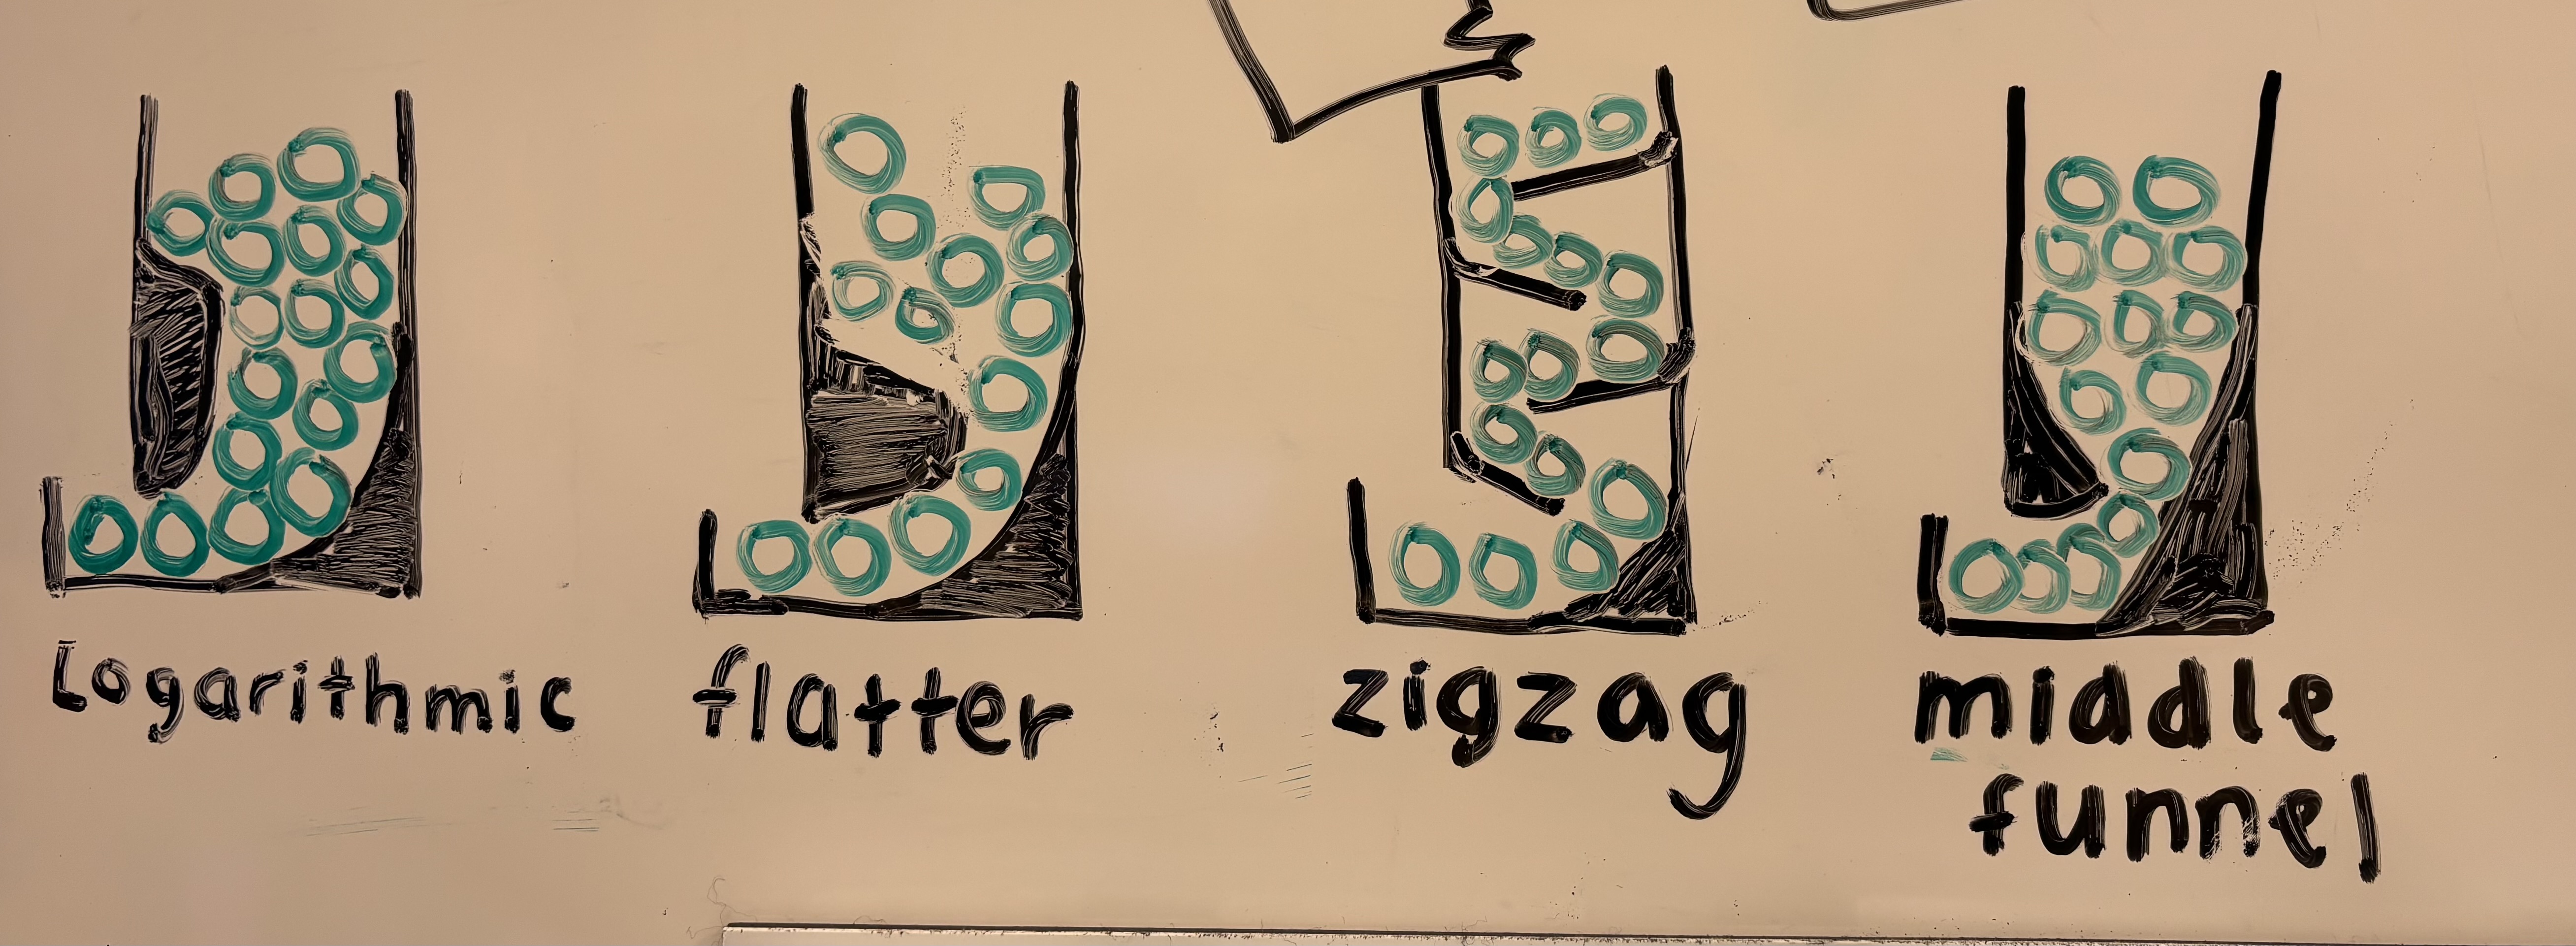 Logarithmic
flatter
zigzag
middle
funnel